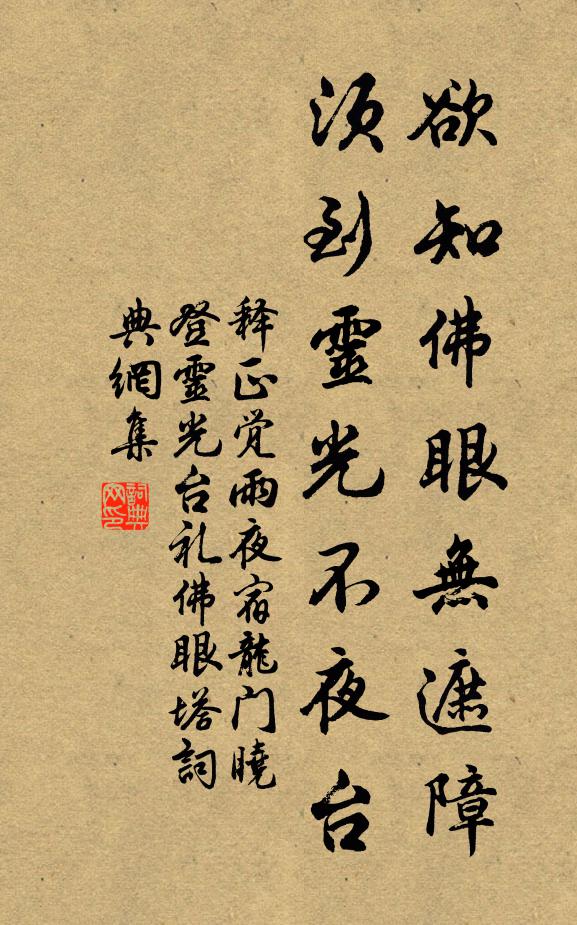 欲知佛眼無遮障
須到靈光不夜台
释正觉雨夜宿龍门曉
登靈光台礼佛眼塔詞
典網集
詞典网印